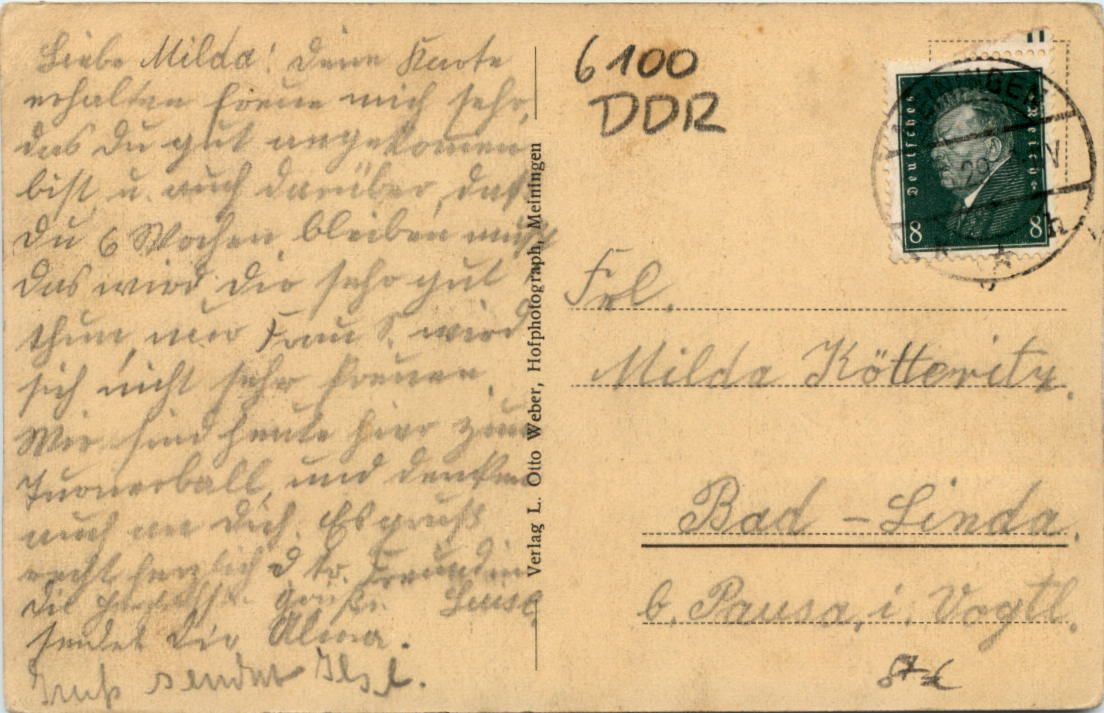 Liebe Milda! Deine Karte
erhalten freue mich sehr,
das Du gut angekommen
bist u. auch darüber, das
Du 6 Wochen bleiben mußt
das wird Dir sehr gut
thun, nur Frau S. wird
sich nicht sehr freuen.
Wir sind heute hier zum
Turnerball, und denken
auch an Dich. Es grüßt
recht herzlich d. tr. Freundin
Die Grüße Luise
sendet Dir Alma.
Gruß sendet Ilse.
Verlag L. Otto Weber, Hofphotograph, Meiningen
6100
DDR
Deutsches Reich
8 8
MEININGEN
Frl.
Milda Kötteritz.
Bad - Linda.
b. Pausa, i. Vogtl.